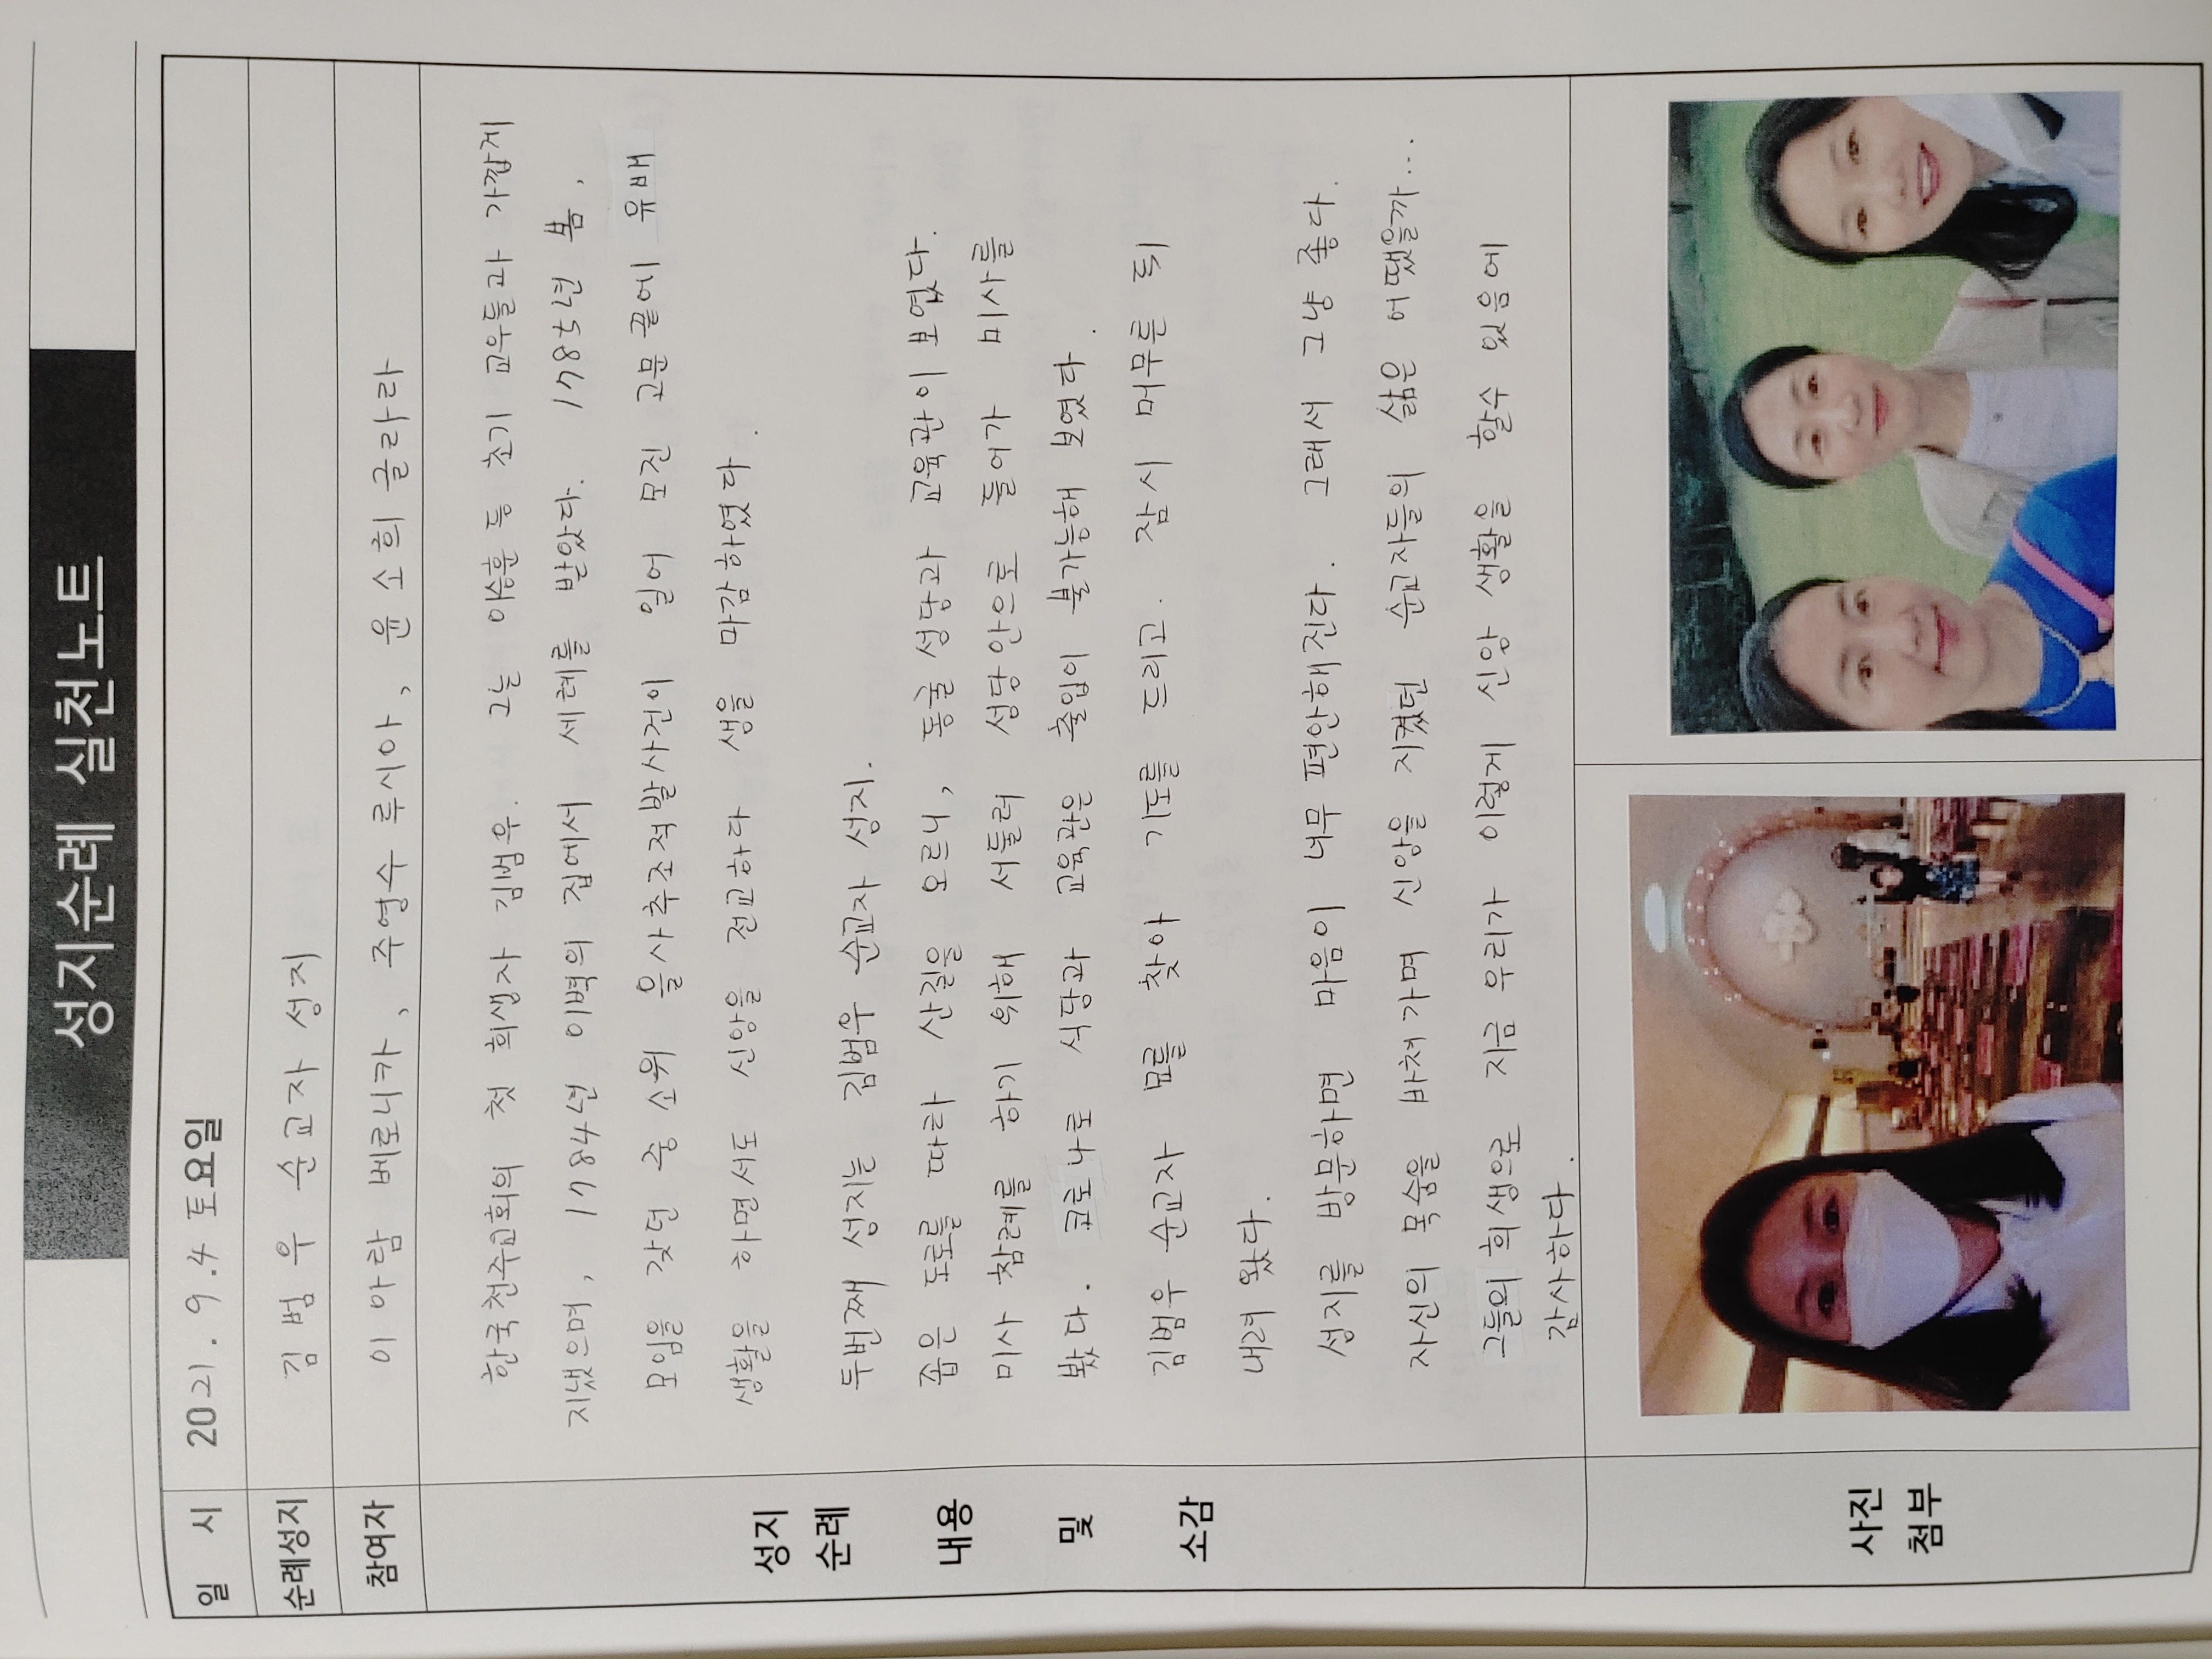 성지순례 실천노트
일 시 2021. 9. 4 토요일
순례성지 김범우 순교자 성지
참여자 이아람 베로니카, 주영수 루시아, 윤소희 글라라
성지
순례
내용
및
소감
한국천주교회의 첫 희생자 김범우. 그는 이승훈 등 초기 교우들과 가깝게
지냈으며, 1784년 이벽의 집에서 세례를 받았다. 1785년 봄,
모임을 갖던 중 소위 을사추조적발사건이 일어 모진 고문끝에 유배
생활을 하면서도 신앙을 전교하다 생을 마감하였다.
두번째 성지는 김범우 순교자 성지.
좁은 도로를 따라 산길을 오르니, 동굴성당과 교육관이 보였다.
미사 참례를 하기 위해 서둘러 성당안으로 들어가 미사를
봤다. 코로나로 식당과 교육관은 출입이 불가능해 보였다.
김범우 순교자 묘를 찾아 기도를 드리고. 잠시 머무른 뒤
내려 왔다.
성지를 방문하면 마음이 너무 편안해진다. 그래서 그냥 좋다.
자신의 목숨을 바쳐가며 신앙을 지켰던 순교자들의 삶은 어땠을까...
그들의 희생으로 지금 우리가 이렇게 신앙 생활을 할수 있음에
감사하다.
사진
첨부